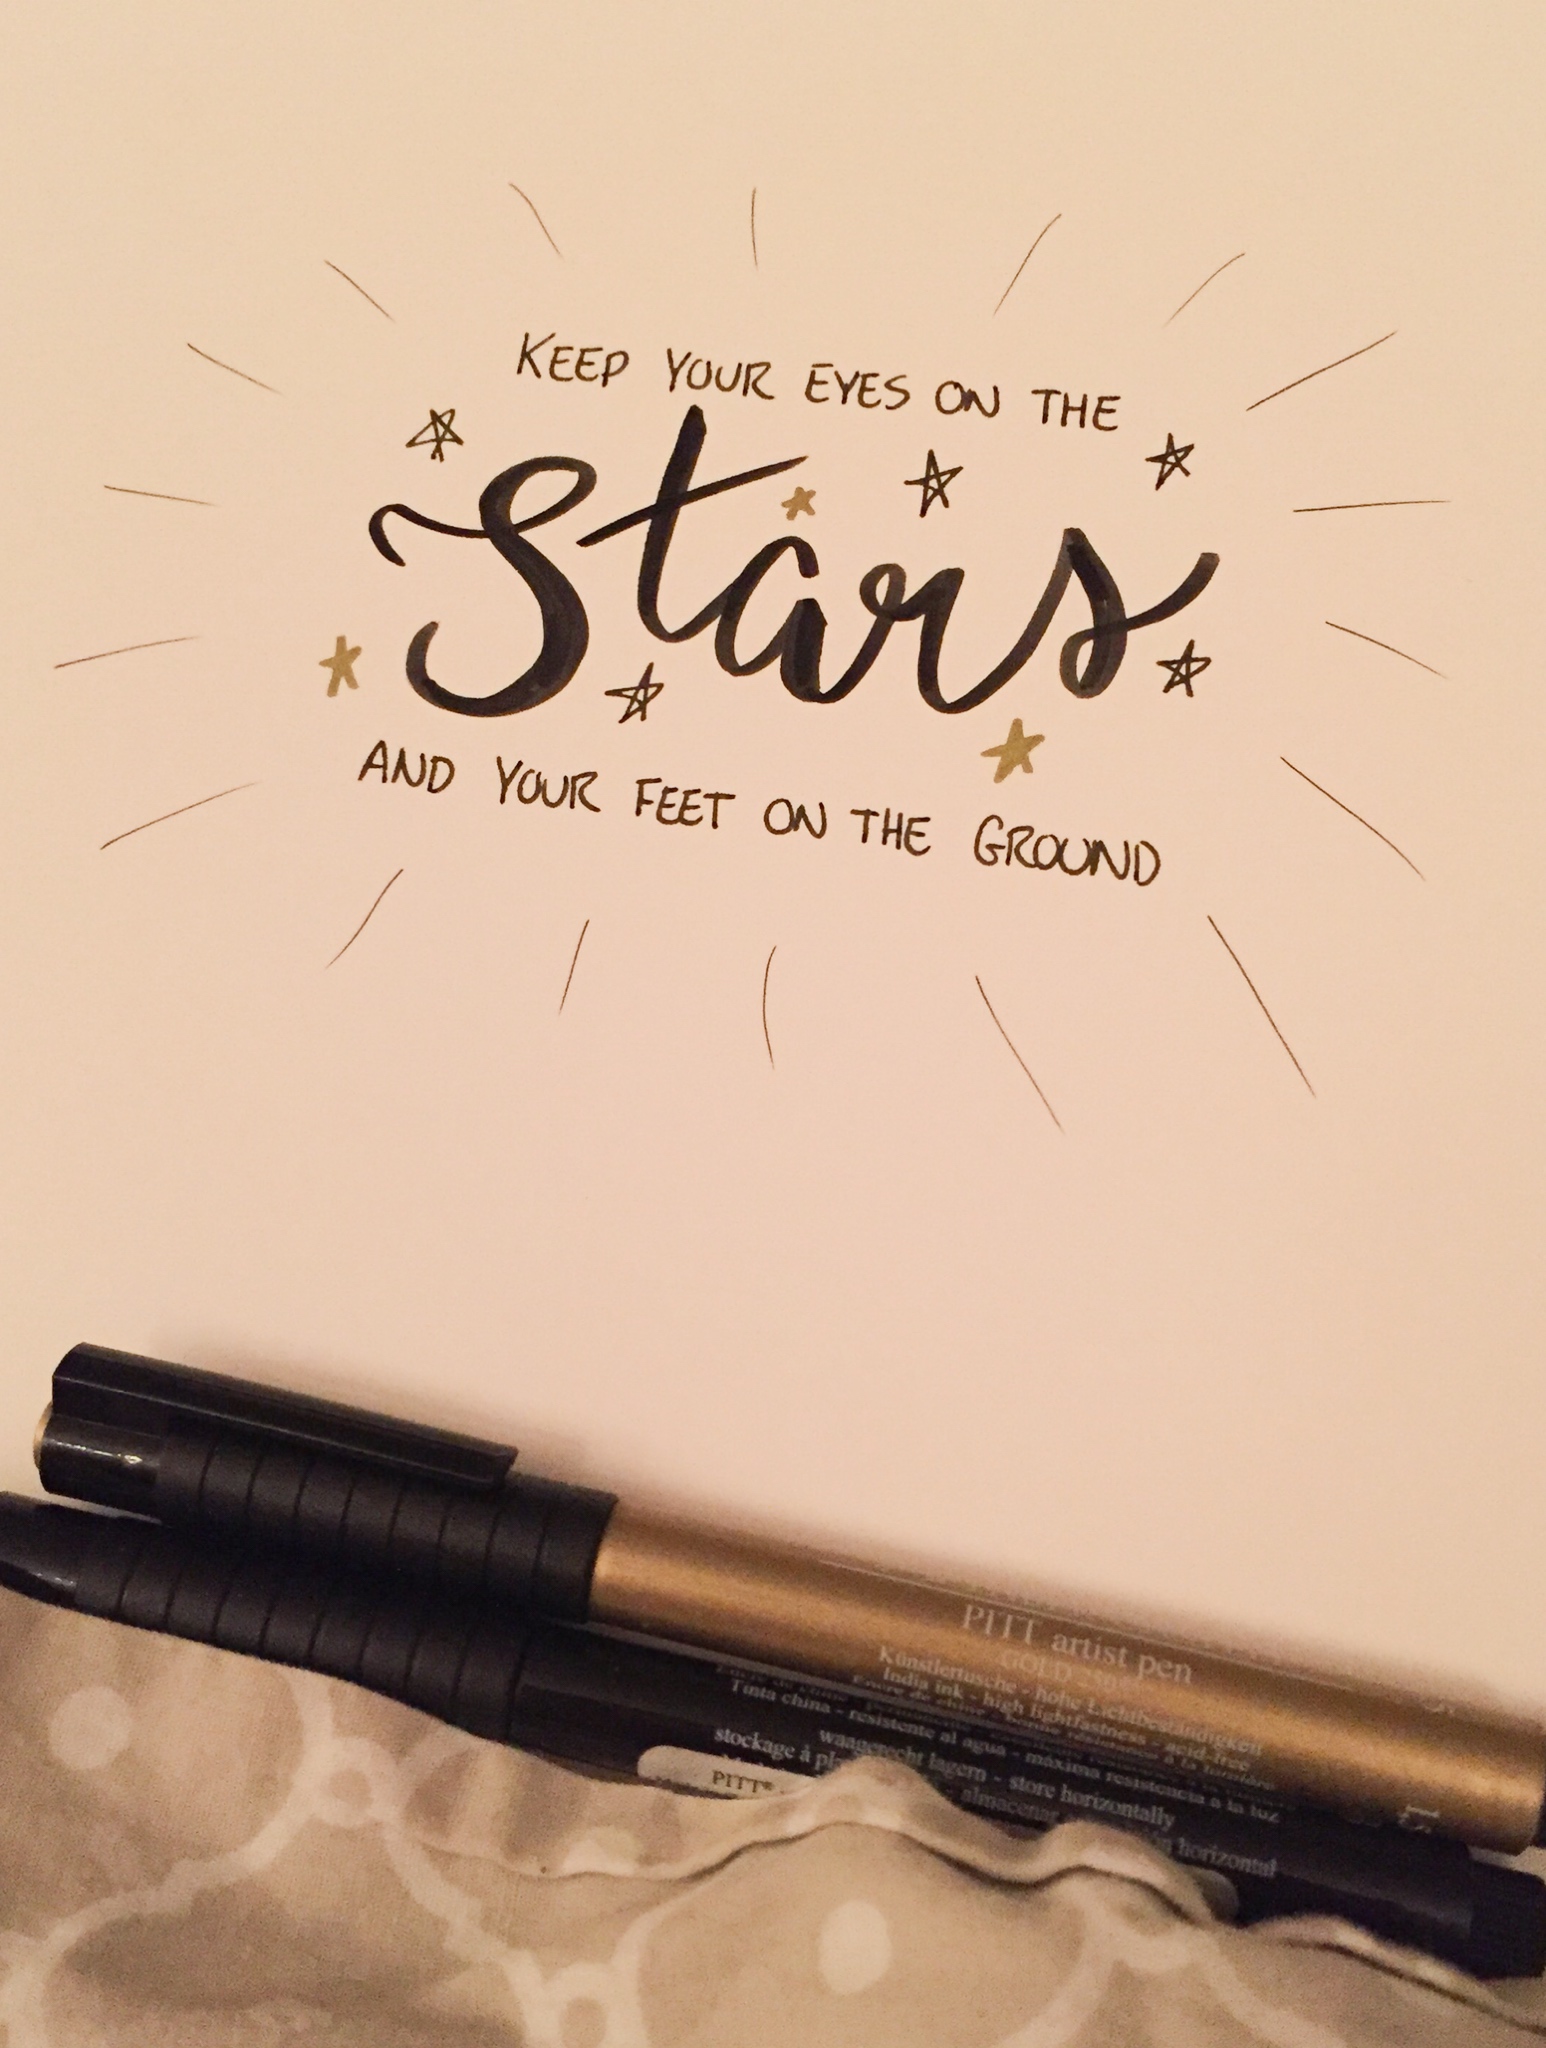 KEEP YOUR EYES ON THE
Stars
AND YOUR FEET ON THE GROUND
PITT artist pen
GOLD
Künstlertusche - hohe Lichtbeständigkeit
India ink - high lightfastness - acid-free
Tinta china - resistente al agua - máxima resistencia a la luz
waagerecht lagern - store horizontally
stockage à
almacenar horizontal
PITT®